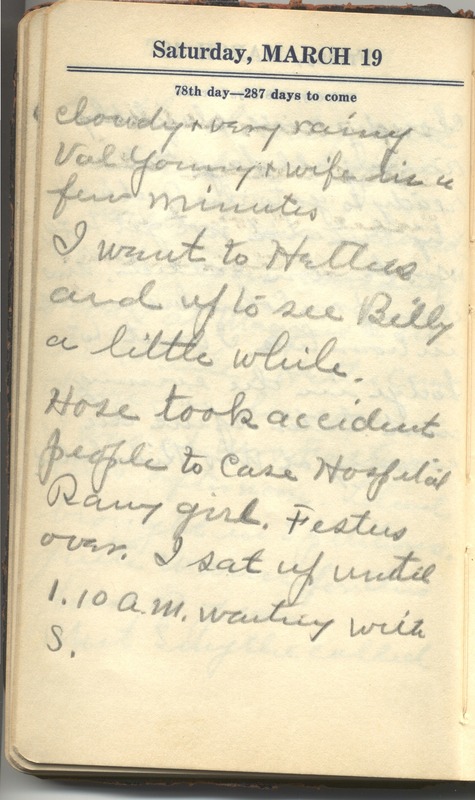 Saturday, MARCH 19
78th day—287 days to come
cloudy + very rainy
Val Young + wife in a
few minutes
I went to Hatties
and up to see Billy
a little while.
Hose took accident
people to Case Hospital
girl. Festus
over. I sat up until
1.10 A.M. waiting with
S.